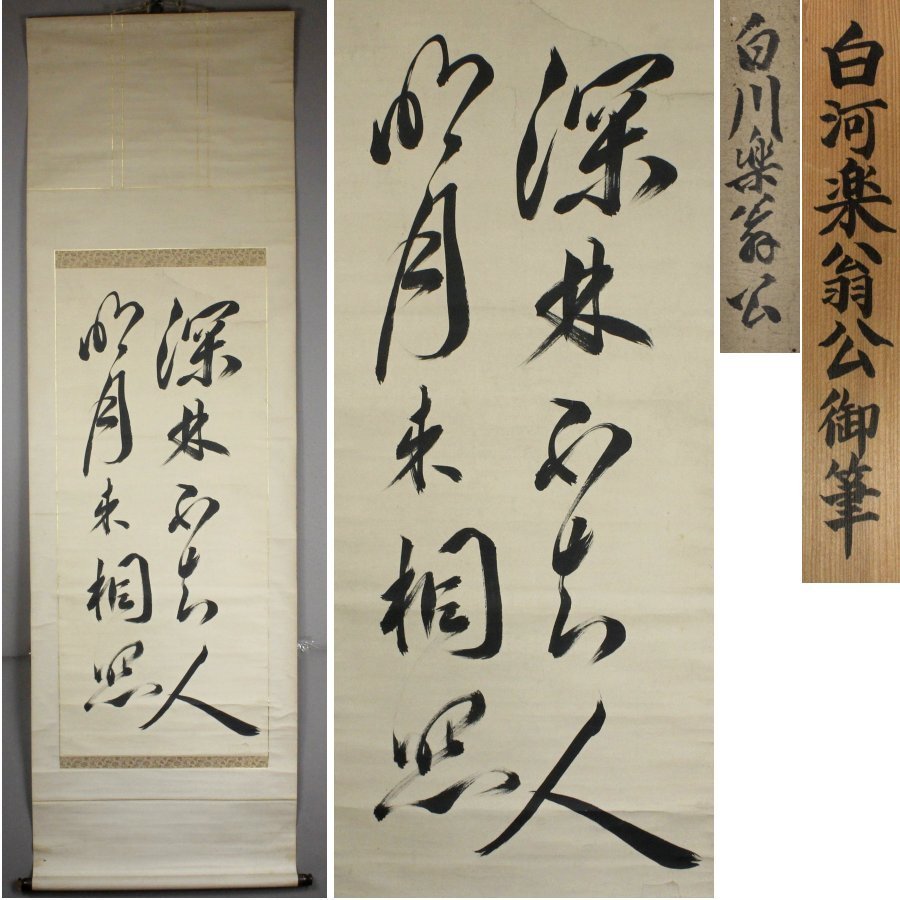 深林人不知
明月来相照
深林不知人
明月来相照
白川楽翁公
白河楽翁公御筆